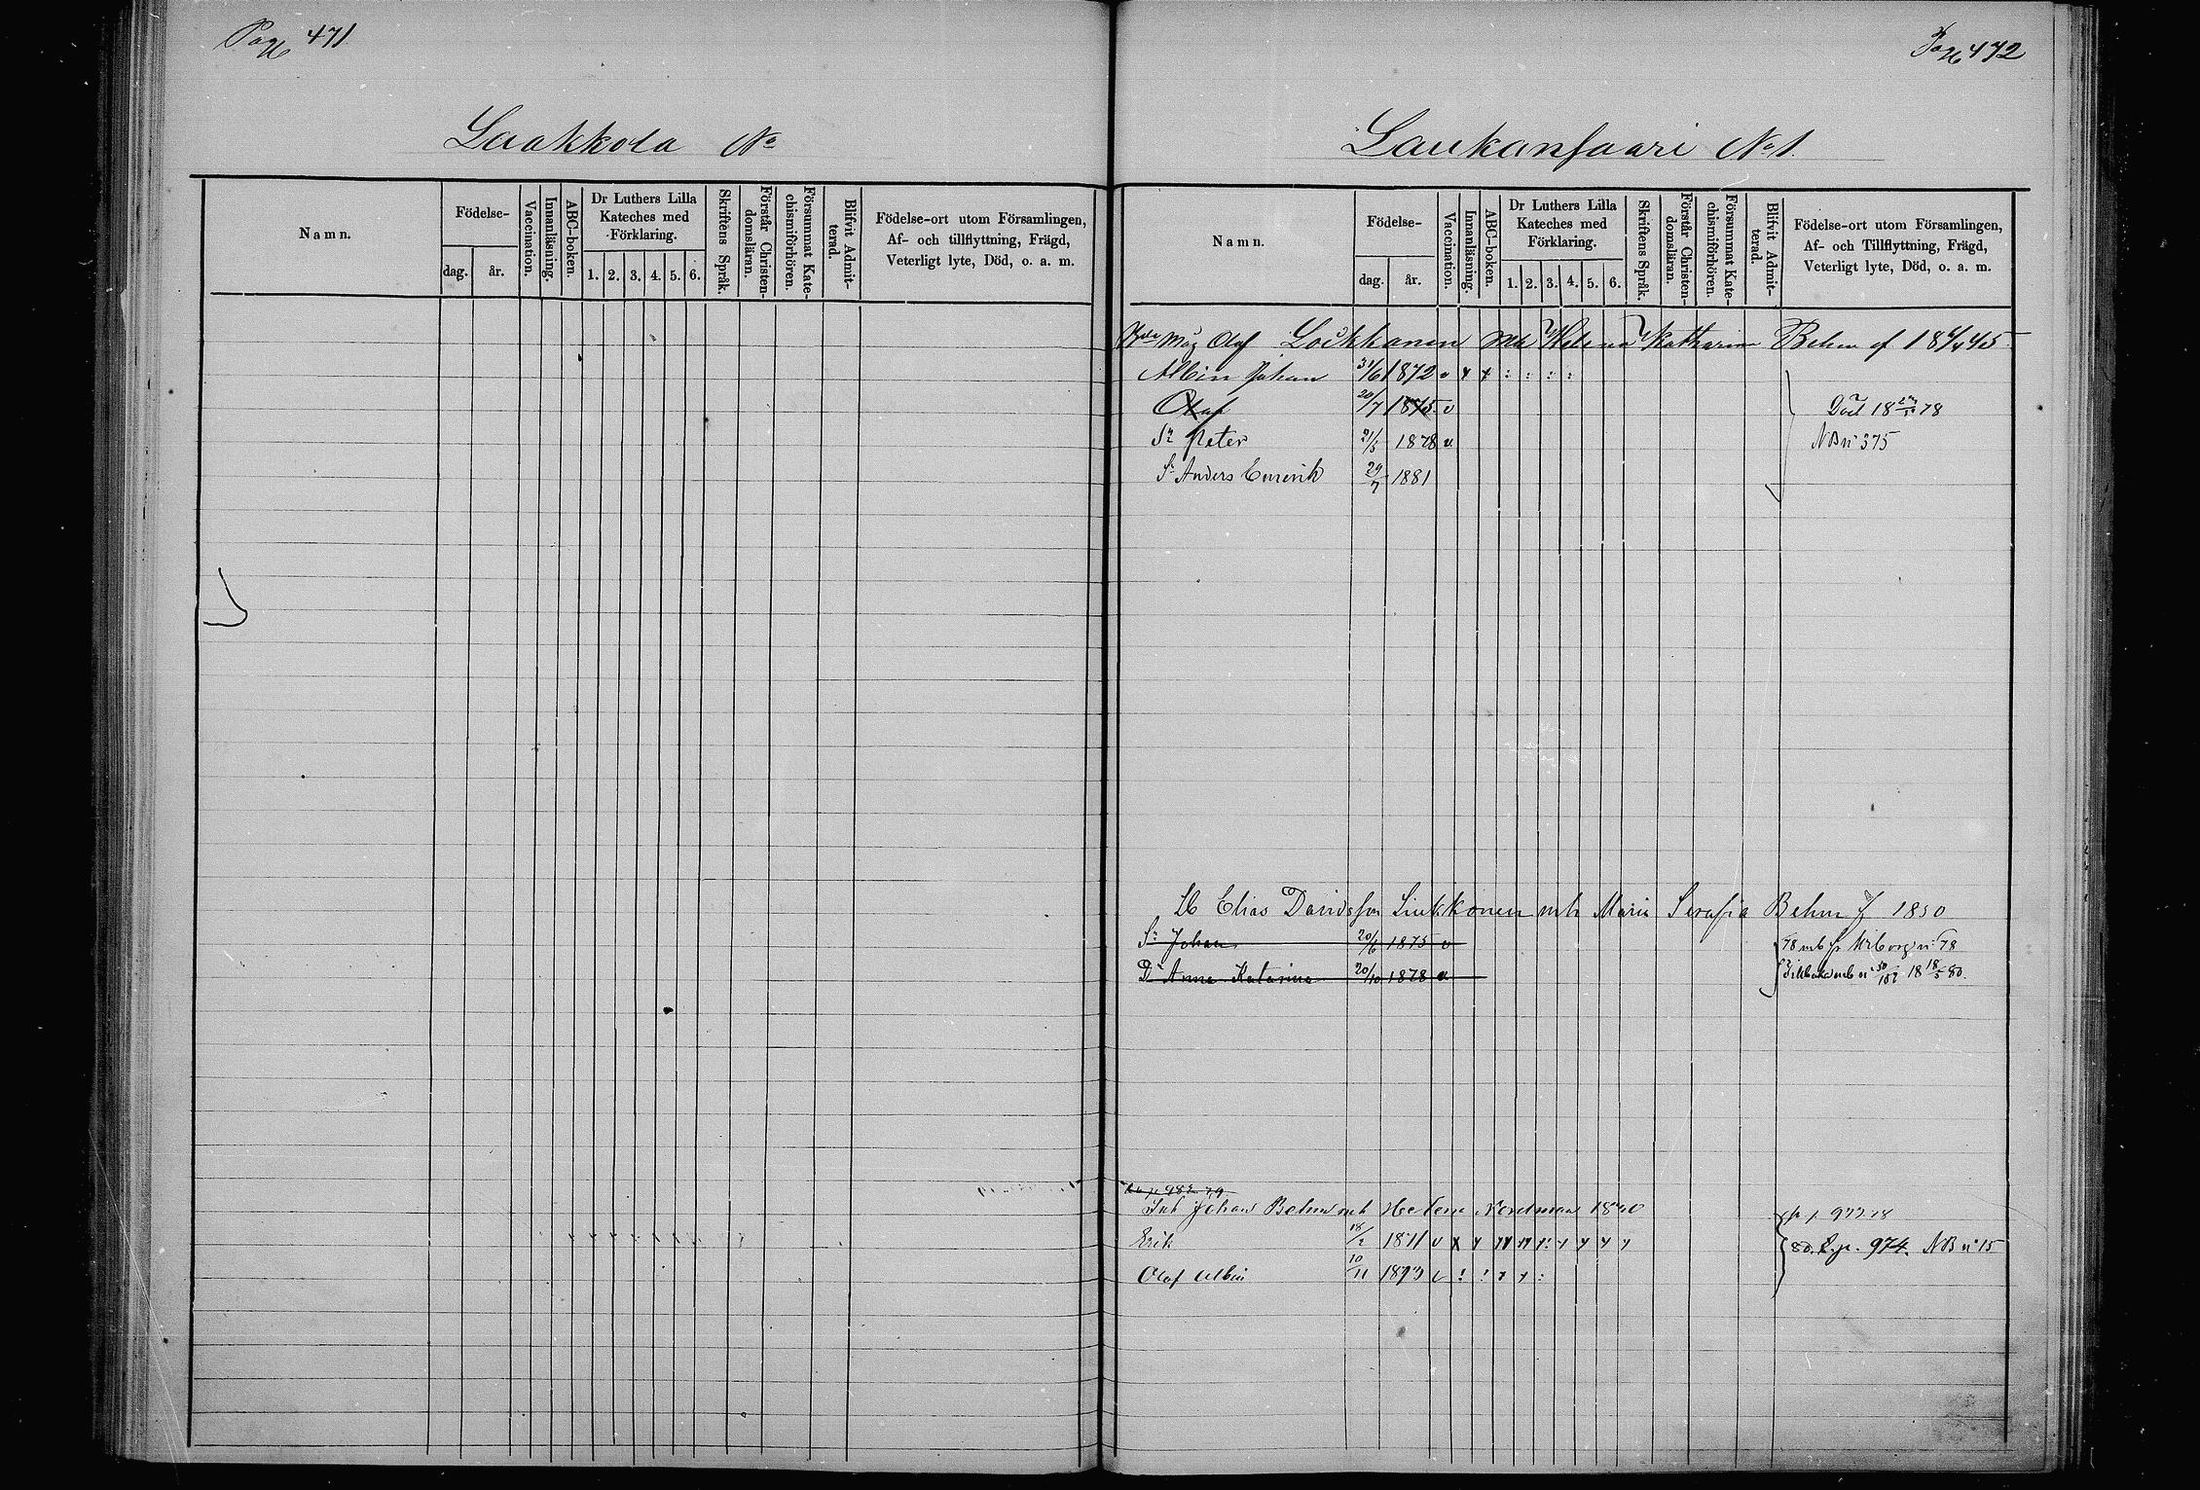 Pag 471
Laakkola No
Namn.
Födelse-
dag.
år.
Vaccination.
Innanläsning.
ABC-boken.
Dr Luthers Lilla
Kateches med
Förklaring.
1. 2. 3. 4. 5. 6.
Skriftens Språk.
Förstår Christen-
domsläran.
Försummat Kate-
chismiförhören.
Blifvit Admit-
terad.
Födelse-ort utom Församlingen,
Af- och tillflyttning, Frägd,
Veterligt lyte, Död, o. a. m.
Pag 472
Laukansaari No 1.
Namn.
Födelse-
dag.
år.
Vaccination.
Innanläsning.
ABC-boken.
Dr Luthers Lilla
Kateches med
Förklaring.
1. 2. 3. 4. 5. 6.
Skriftens Språk.
Förstår Christen-
domsläran.
Försummat Kate-
chismiförhören.
Blifvit Admit-
terad.
Födelse-ort utom Församlingen,
Af- och Tillflyttning, Frägd,
Veterligt lyte, Död, o. a. m.
Olof Loikkanen mh Helena Katharina Behm
Albin Johan 31/6 1872 v x x : : : :
Olof 20/7 1875 v Död 78
Sn Peter 21/5 1878 v NB no 375
Sn Anders Emerik 29/7 1881
Elias Davidsson Liukkonen mh Maria Serafia Behm f 1850
Sn Johan 20/6 1875 v
Dr Anna Katarina 20/10 1878 v 18 18/5 80.
Johan Behm mh Helena Nordman
Erik 18/2 1871 v x 80. p. 974. NB no 15
Olof Albin 10/11 1873 v